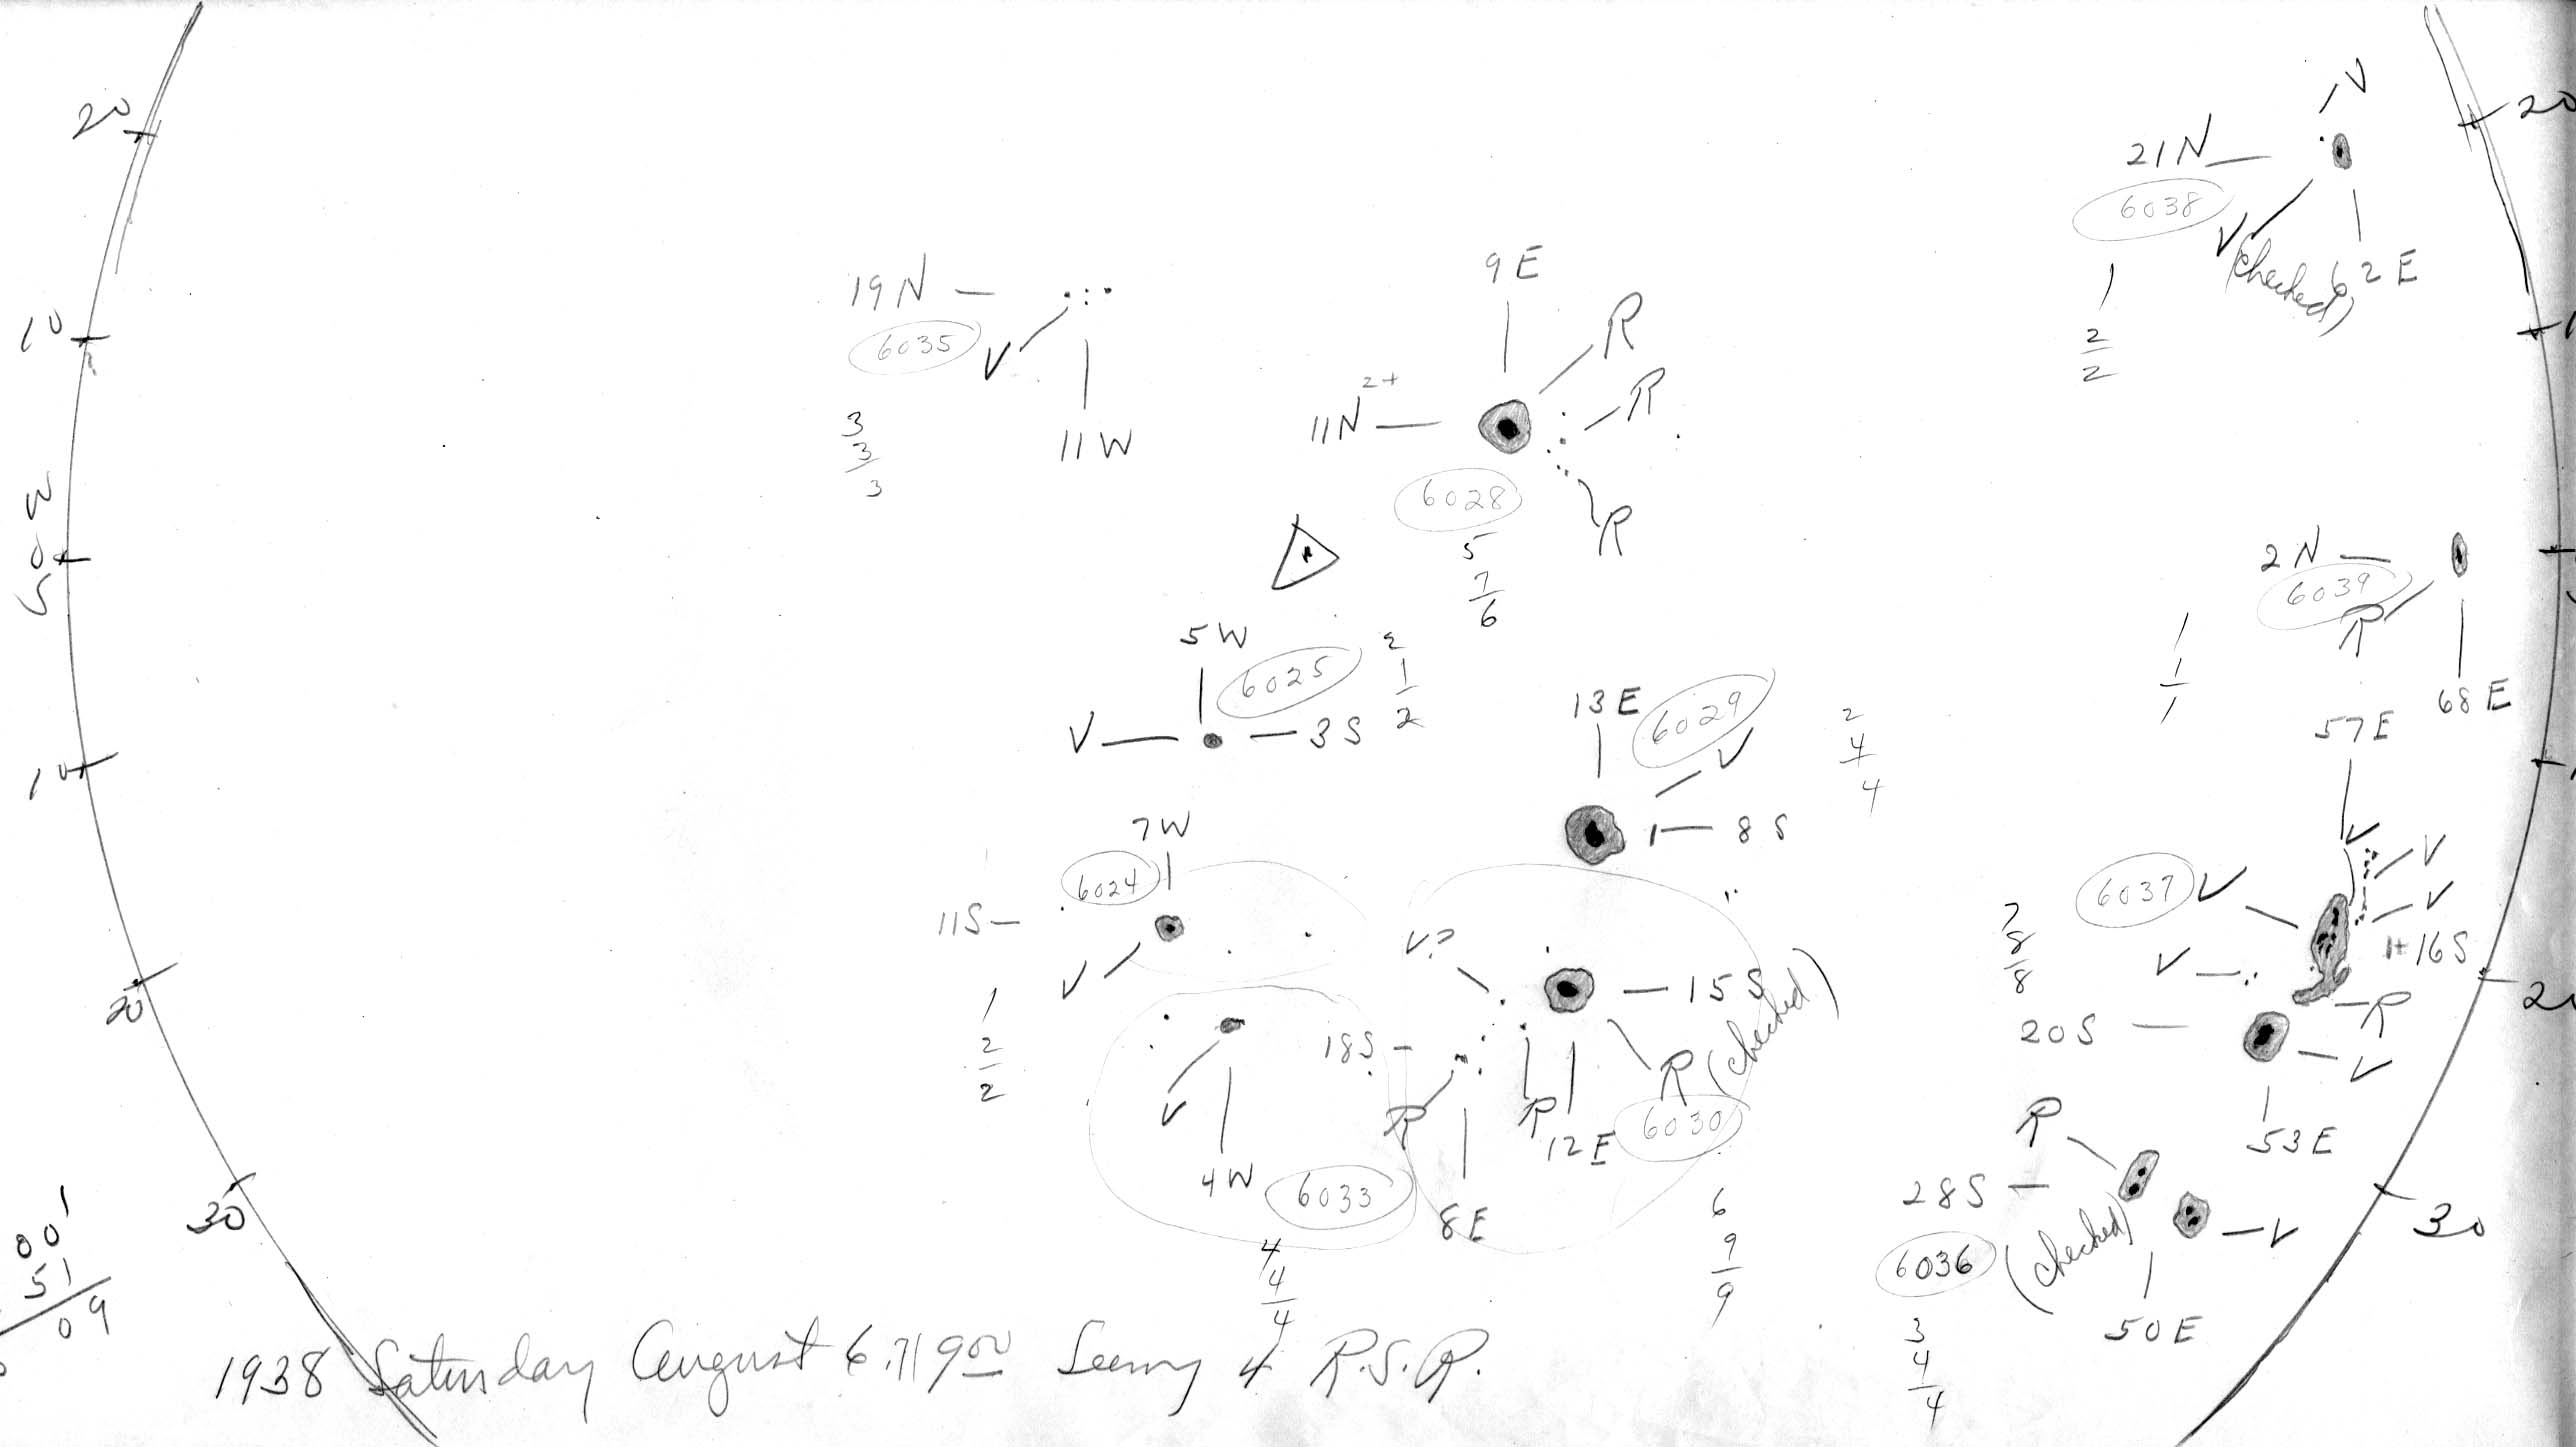 20
10
W
0
S
10
20
30
19N
6035
V
11W
3
3
3
9E
R
R
11N
2+
6028
R
5
7
6
V
21N
6038
V
(checked)
62E
1
2
2
20
2N
6039
R
68E
1
1
1
5W
6025
2
1
2
V
3S
13E
6029
V
8S
2
4
4
7W
6024
11S
V
1
2
2
V
4W
6033
4
4
4
V?
15S
18S
R
R
R (checked)
12E
6030
8E
6
9
9
57E
V
V
V
V
6037
1+
16S
V
R
20S
V
53E
7
8
8
20
R
28S
6036
(checked)
V
50E
3
4
4
30
00
51
09
1938 Saturday August 6.71 9:00 Seeing 4 R.S.R.